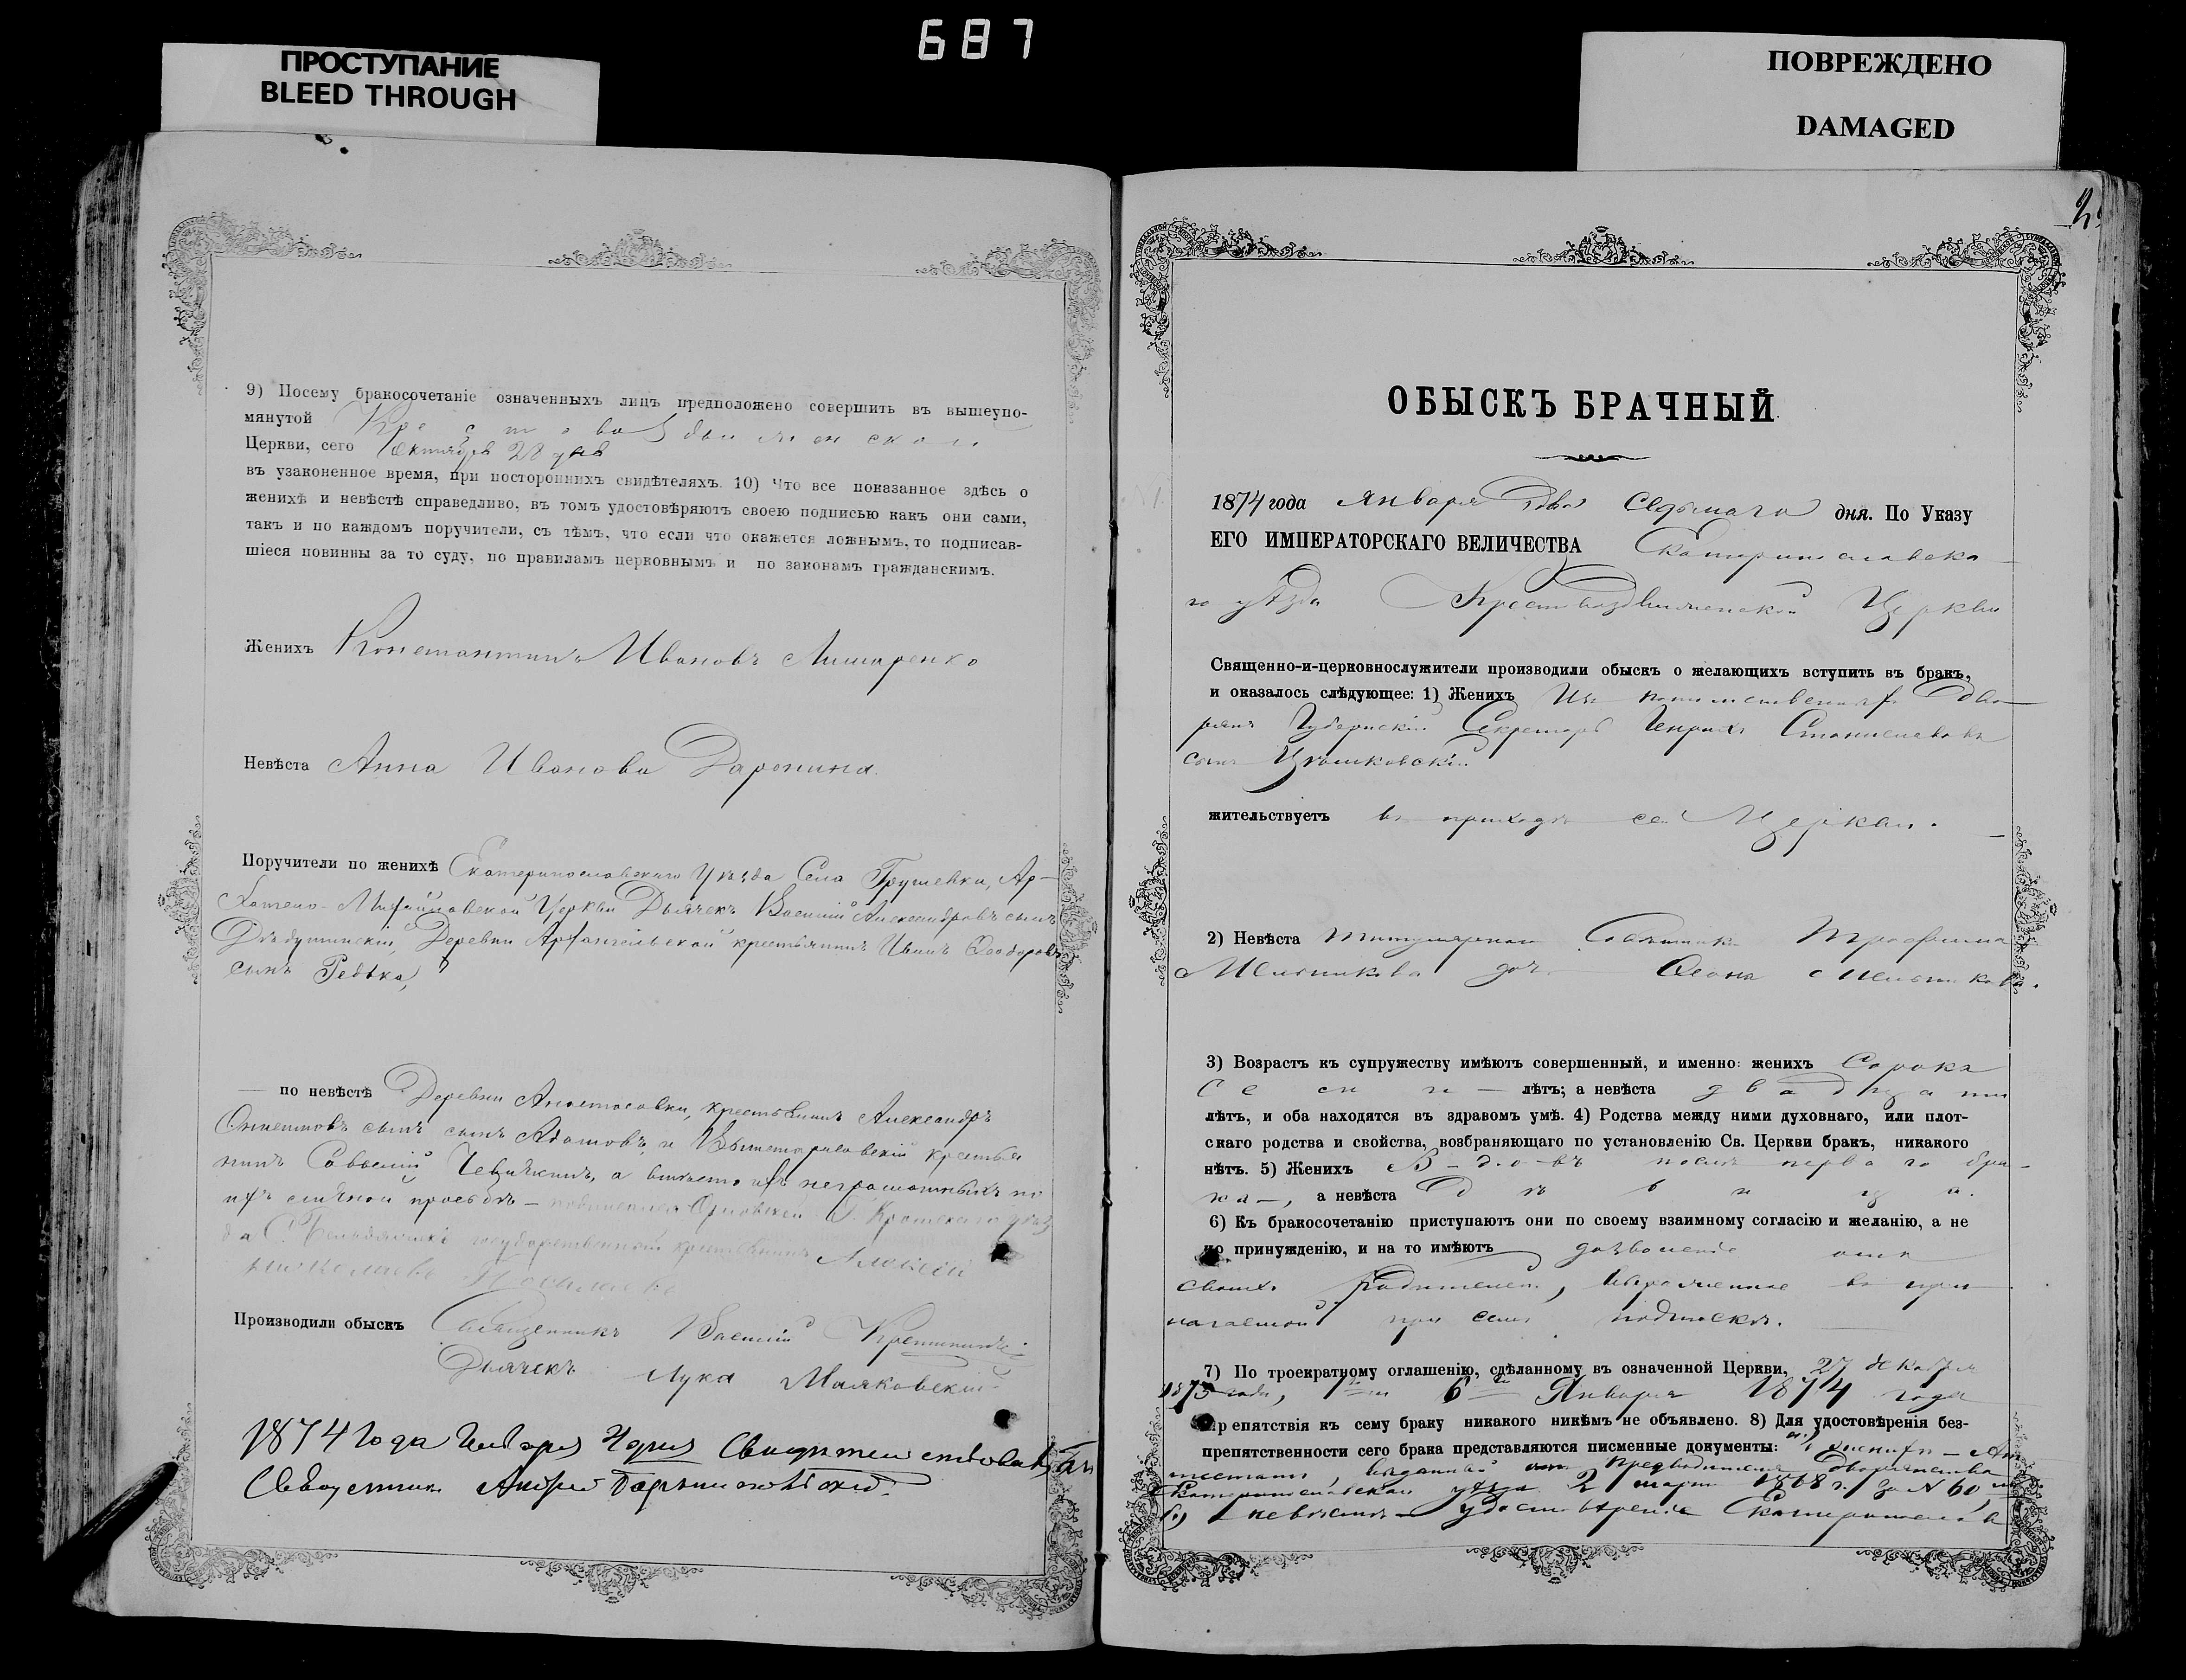 687
ПРОСТУПАНИЕ
BLEED THROUGH
ПОВРЕЖДЕНО
DAMAGED
9) Посему бракосочетаніе означенныхъ лицъ предположено совершить въ вышеупо-
мянутой Крестовоздвиженской
Церкви, сего Октября 28 дня
въ узаконенное время, при постороннихъ свидѣтеляхъ. 10) Что все показанное здѣсь о
женихѣ и невѣстѣ справедливо, въ томъ удостовѣряютъ своею подписью какъ они сами,
такъ и по каждомъ поручители, съ тѣмъ, что если что окажется ложнымъ, то подписав-
шіеся повинны за то суду, по правиламъ церковнымъ и по законамъ гражданскимъ.
Женихъ Константинъ Ивановъ Лишаренко
Невѣста Анна Иванова Даронина.
Поручители по женихѣ Екатеринославскаго Уѣзда Села Грушевки, Ар-
Михайловской Церкви Дьячекъ Василій Александровъ сынъ
Деревни Архангельской крестьянинъ Иванъ Ѳеодоровъ
сынъ Редька,
по невѣстѣ Деревни Анастасовки, крестьянинъ Александръ
сынъ Адамовъ, и крестья
нинъ Савелій а вмѣсто ихъ неграмотныхъ по
ихъ личной прозьбѣ Орловской Г. Кромскаго уѣз
да С. государственный крестьянинъ Алексѣй
Николаевъ
Производили обыскъ Священникъ Василій
Дьячекъ Лука Маяковскій
1874 года Января 4 дня Свидѣтельствовалъ Бл.
Андрей Барышпольскій.
2
ОБЫСКЪ БРАЧНЫЙ
1874 года Января Седьмаго дня. По Указу
ЕГО ИМПЕРАТОРСКАГО ВЕЛИЧЕСТВА Екатеринославска
го уѣзда Крестовоздвиженской Церкви
Священно-и-церковнослужители производили обыскъ о желающихъ вступить въ бракъ,
и оказалось слѣдующее: 1) Женихъ Изъ потомственныхъ Дво
рянъ Губернскій Секретарь Генрихъ Станиславовъ
сынъ
жительствуетъ въ приходѣ сей Церкви.
2) Невѣста Титулярнаго Совѣтника Трофима
Мельникова дочь Мельникова.
3) Возрастъ къ супружеству имѣютъ совершенный, и именно: женихъ Сорока
Семи лѣтъ; а невѣста двадцати
лѣтъ, и оба находятся въ здравомъ умѣ. 4) Родства между ними духовнаго, или плот-
скаго родства и свойства, возбраняющаго по установленію Св. Церкви бракъ, никакого
нѣтъ. 5) Женихъ Вдовъ послѣ перваго бра-
ка, а невѣста Дѣвица.
6) Къ бракосочетанію приступаютъ они по своему взаимному согласію и желанію, а не
по принужденію, и на то имѣютъ дозволеніе отъ
своихъ родителей, выраженное въ при
лагаемой при семъ подпискѣ.
7) По троекратному оглашенію, сдѣланному въ означенной Церкви, 27 декабря
1873 года, 1го и 6го Января 1874 года
препятствія къ сему браку никакого никѣмъ не объявлено. 8) Для удостовѣренія без-
препятственности сего брака представляются писменные документы: а) жениха Ат
тестатъ, выданный Предводителемъ Дворянства
Екатеринославскаго уѣзда 2 марта 1868 г. за N 60, и
б) невѣсты удостовѣреніе